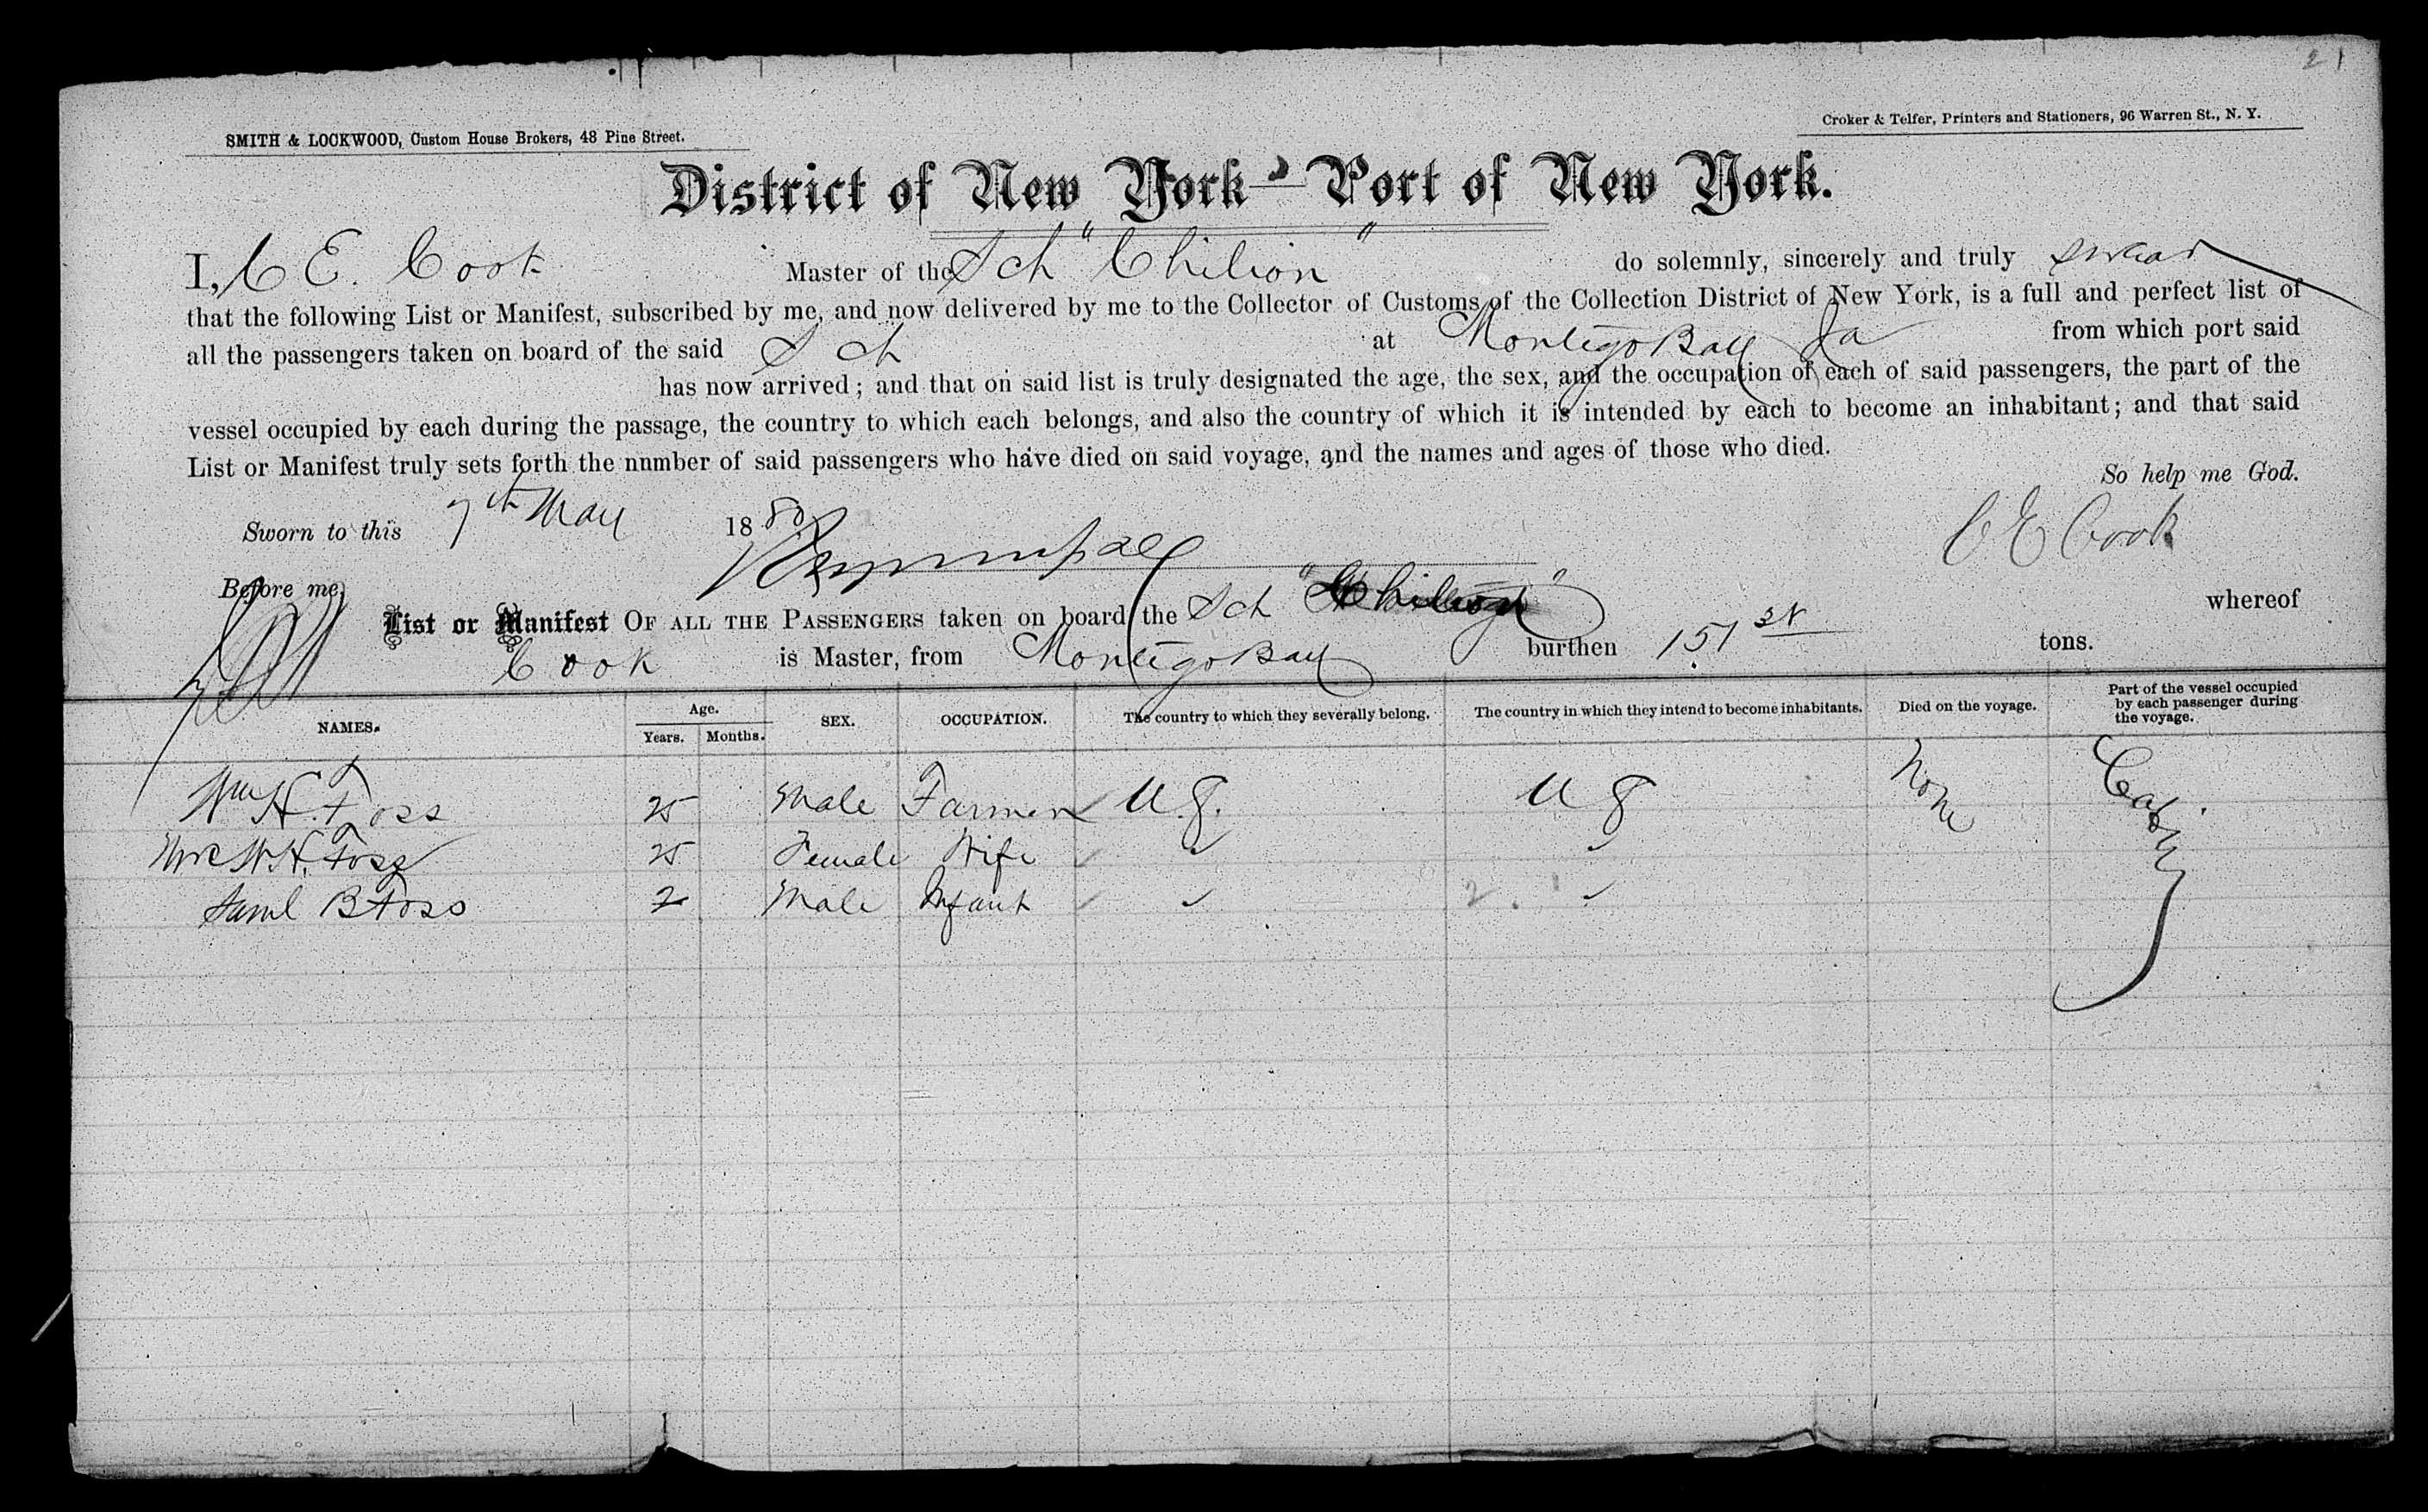 21
SMITH & LOCKWOOD, Custom House Brokers, 48 Pine Street.
Croker & Telfer, Printers and Stationers, 96 Warren St., N. Y.
District of New York - Port of New York.
I, C E. Cook Master of the Sch "Chilion" do solemnly, sincerely and truly swear
that the following List or Manifest, subscribed by me, and now delivered by me to the Collector of Customs of the Collection District of New York, is a full and perfect list of
all the passengers taken on board of the said Sch at Montego Bay Ja from which port said
has now arrived; and that on said list is truly designated the age, the sex, and the occupation of each of said passengers, the part of the
vessel occupied by each during the passage, the country to which each belongs, and also the country of which it is intended by each to become an inhabitant; and that said
List or Manifest truly sets forth the number of said passengers who have died on said voyage, and the names and ages of those who died.
So help me God.
Sworn to this 7th May 1880
C E Cook
Before me,
List or Manifest OF ALL THE PASSENGERS taken on board the Sch "Chilion" whereof
Cook is Master, from Montego Bay burthen 151 tons.
NAMES. Age. Years. Months. SEX. OCCUPATION. The country to which they severally belong. The country in which they intend to become inhabitants. Died on the voyage. Part of the vessel occupied by each passenger during the voyage.
Wm H. Foss 25 Male Farmer U.S. U S None Cabin
Mrs W H. Foss 25 Female Wife
Saml B Foss 2 Male Infant 2.